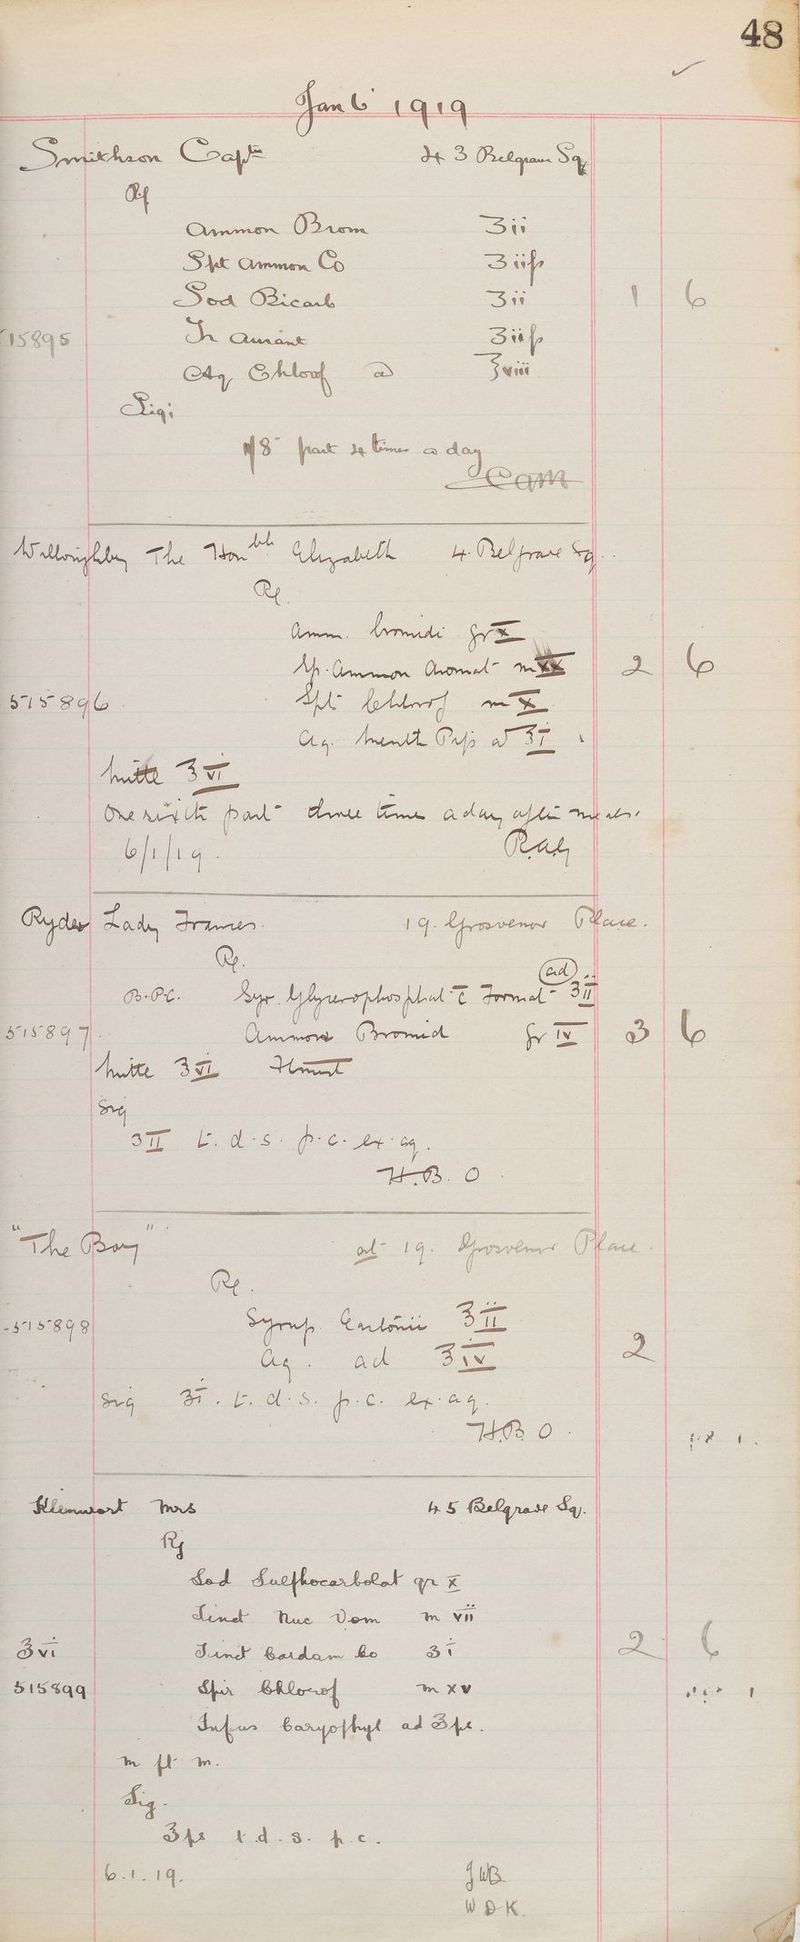 48
Jan 6 1919
Smithson Captn 43 Belgrave Sq
Rx
Ammon Brom ʒii
Spt Ammon Co ʒiiſs
Sod Bicarb ʒii 1 6
15895 Tr Aurant ʒiiſs
Aq Chlorof ad ℥viii
Sig:
1/8 part 4 times a day
CAM
Willoughby The Honble Elizabeth 4. Belgrave Sq.
Rx.
Amm. bromidi gr X
Sp. Ammon Aromat m XX 2 6
515896 Spt Chlorof m X
Aq. Menth Pip ad ℥i
Mitte ℥vi
One sixth part three times a day after meals.
6/1/19. R.A.G
Ryder Lady Frances. 19. Grosvenor Place.
Rx.
B.P.C. Syr. Glycerophosphat c Format ad ʒii
515897. Ammon Bromid gr IV 3 6
Mitte ℥vi
Sig
ʒII t.d.s. p.c. ex. aq.
H.B. O.
"The Boy" at 19. Grosvenor Place.
Rx.
515898 Syrup. Eastonii ℥ii
Aq. ad ℥iv 2
Sig ʒi. t.d.s. p.c. ex. aq.
H.B. O.
Kleinwort Mrs 45 Belgrave Sq.
Rx
Sod Sulphocarbolat gr x
Tinct Nuc Vom m vii
℥vi Tinct Cardam Co ʒi 2 6
515899 Spir Chlorof m xv
Infus Caryophyl ad ℥ſs.
m ft m.
Sig.
℥ſs t.d.s. p.c.
6.1.19. JWB.
W D K.